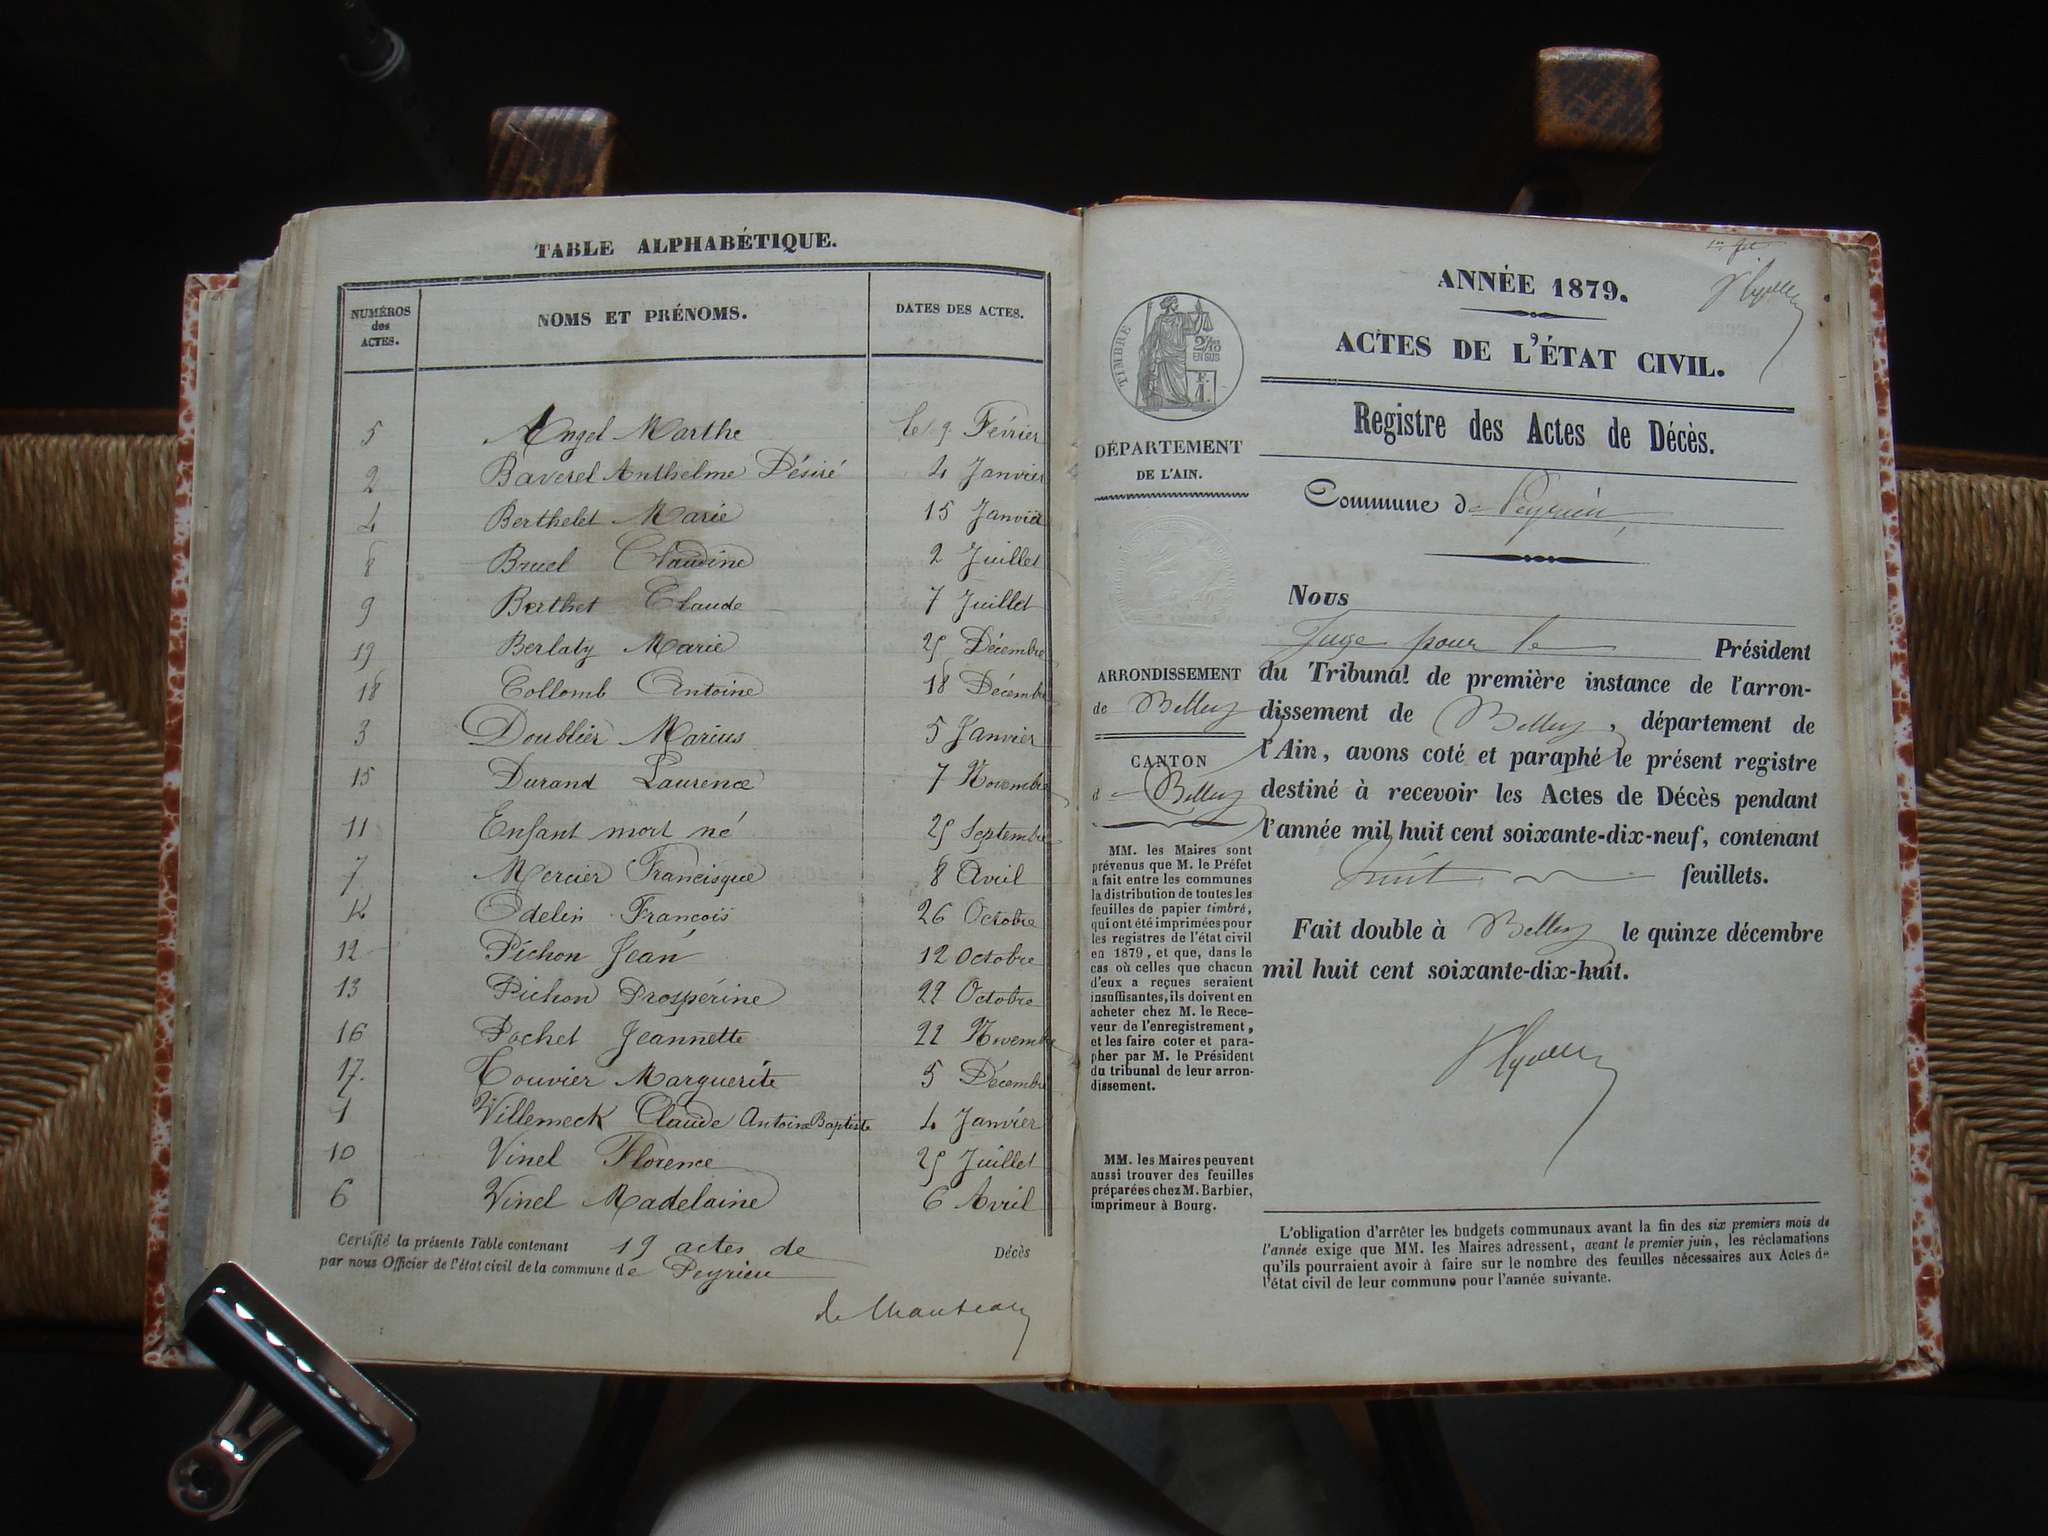 TABLE ALPHABÉTIQUE.
NUMÉROS des ACTES. NOMS ET PRÉNOMS. DATES DES ACTES.
5 Angel Marthe le 9 Février
2 Baverel Anthelme Désiré 4 Janvier
4 Berthelet Marie 15 Janvier
8 Bruel Claudine 2 Juillet
9 Berthet Claude 7 Juillet
19 Berlaty Marie 25 Décembre
18 Collomb Antoine 18 Décembre
3 Doublier Marius 5 Janvier
15 Durand Laurence 7 Novembre
11 Enfant mort né 25 Septembre
7 Mercier Francisque 8 Avril
14 Odelin François 26 Octobre
12 Pichon Jean 12 Octobre
13 Pichon Prospérine 22 Octobre
16 Pochet Jeannette 22 Novembre
17. Touvier Marguerite 5 Décembre
1 Villemeck Claude Antoine Baptiste 4 Janvier
10 Vinel Florence 25 Juillet
6 Vinel Madelaine 6 Avril
Certifié la présente Table contenant 19 actes de Décès
par nous Officier de l'état civil de la commune de Peyrieu
ANNÉE 1879.
ACTES DE L'ÉTAT CIVIL.
Registre des Actes de Décès.
Commune de Peyrieu
TIMBRE
2/10
EN SUS
DÉPARTEMENT
DE L'AIN.
ARRONDISSEMENT
de Belley
CANTON
de Belley
MM. les Maires sont
prévenus que M. le Préfet
a fait entre les communes
la distribution de toutes les
feuilles de papier timbré,
qui ont été imprimées pour
les registres de l'état civil
en 1879, et que, dans le
cas où celles que chacun
d'eux a reçues seraient
insuffisantes, ils doivent en
acheter chez M. le Rece-
veur de l'enregistrement,
et les faire coter et para-
pher par M. le Président
du tribunal de leur arron-
dissement.
MM. les Maires peuvent
aussi trouver des feuilles
préparées chez M. Barbier,
imprimeur à Bourg.
Nous
Juge pour le Président
du Tribunal de première instance de l'arron-
dissement de Belley, département de
l'Ain, avons coté et paraphé le présent registre
destiné à recevoir les Actes de Décès pendant
l'année mil huit cent soixante-dix-neuf, contenant
huit feuillets.
Fait double à Belley le quinze décembre
mil huit cent soixante-dix-huit.
L'obligation d'arrêter les budgets communaux avant la fin des six premiers mois de
l'année exige que MM. les Maires adressent, avant le premier juin, les réclamations
qu'ils pourraient avoir à faire sur le nombre des feuilles nécessaires aux Actes de
l'état civil de leur commune pour l'année suivante.